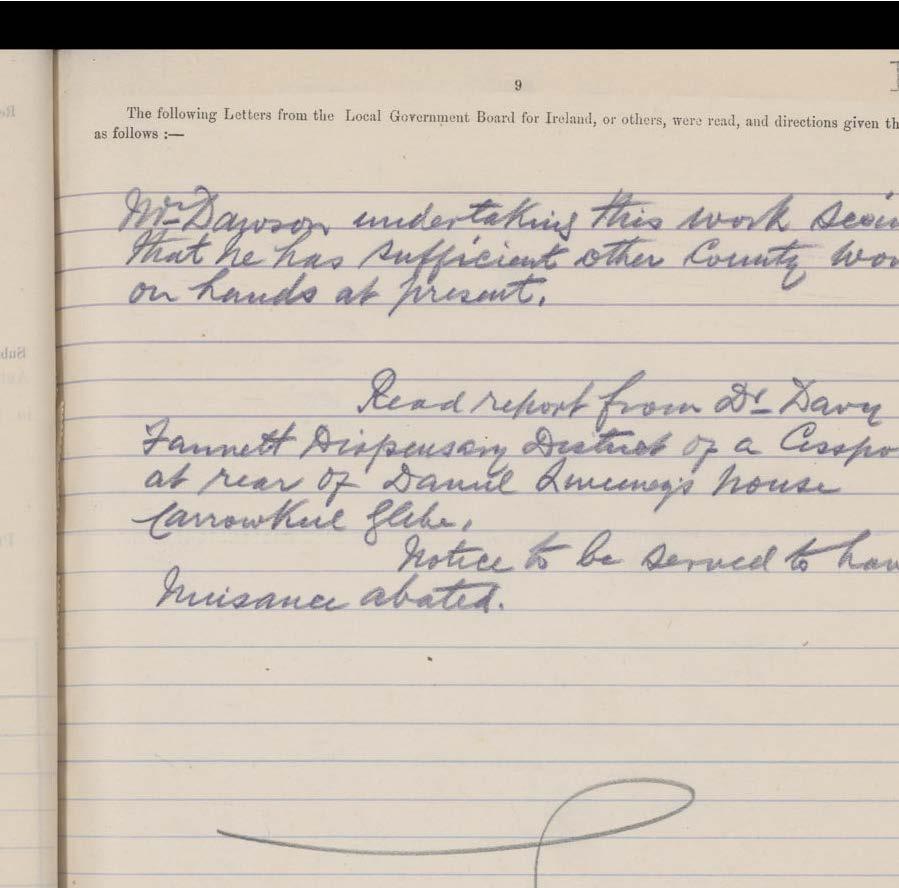 9
The following Letters from the Local Government Board for Ireland, or others, were read, and directions given th
as follows :—
Mr Dawson undertaking this work seein
that he has sufficient other County wor
on hands at present.
Read report from Dr Davy
Fannett Dispensary District of a Cesspo
at rear of Daniel Sweeney's house
Carrowkeel Glebe.
Notice to be served to hav
Nuisance abated.